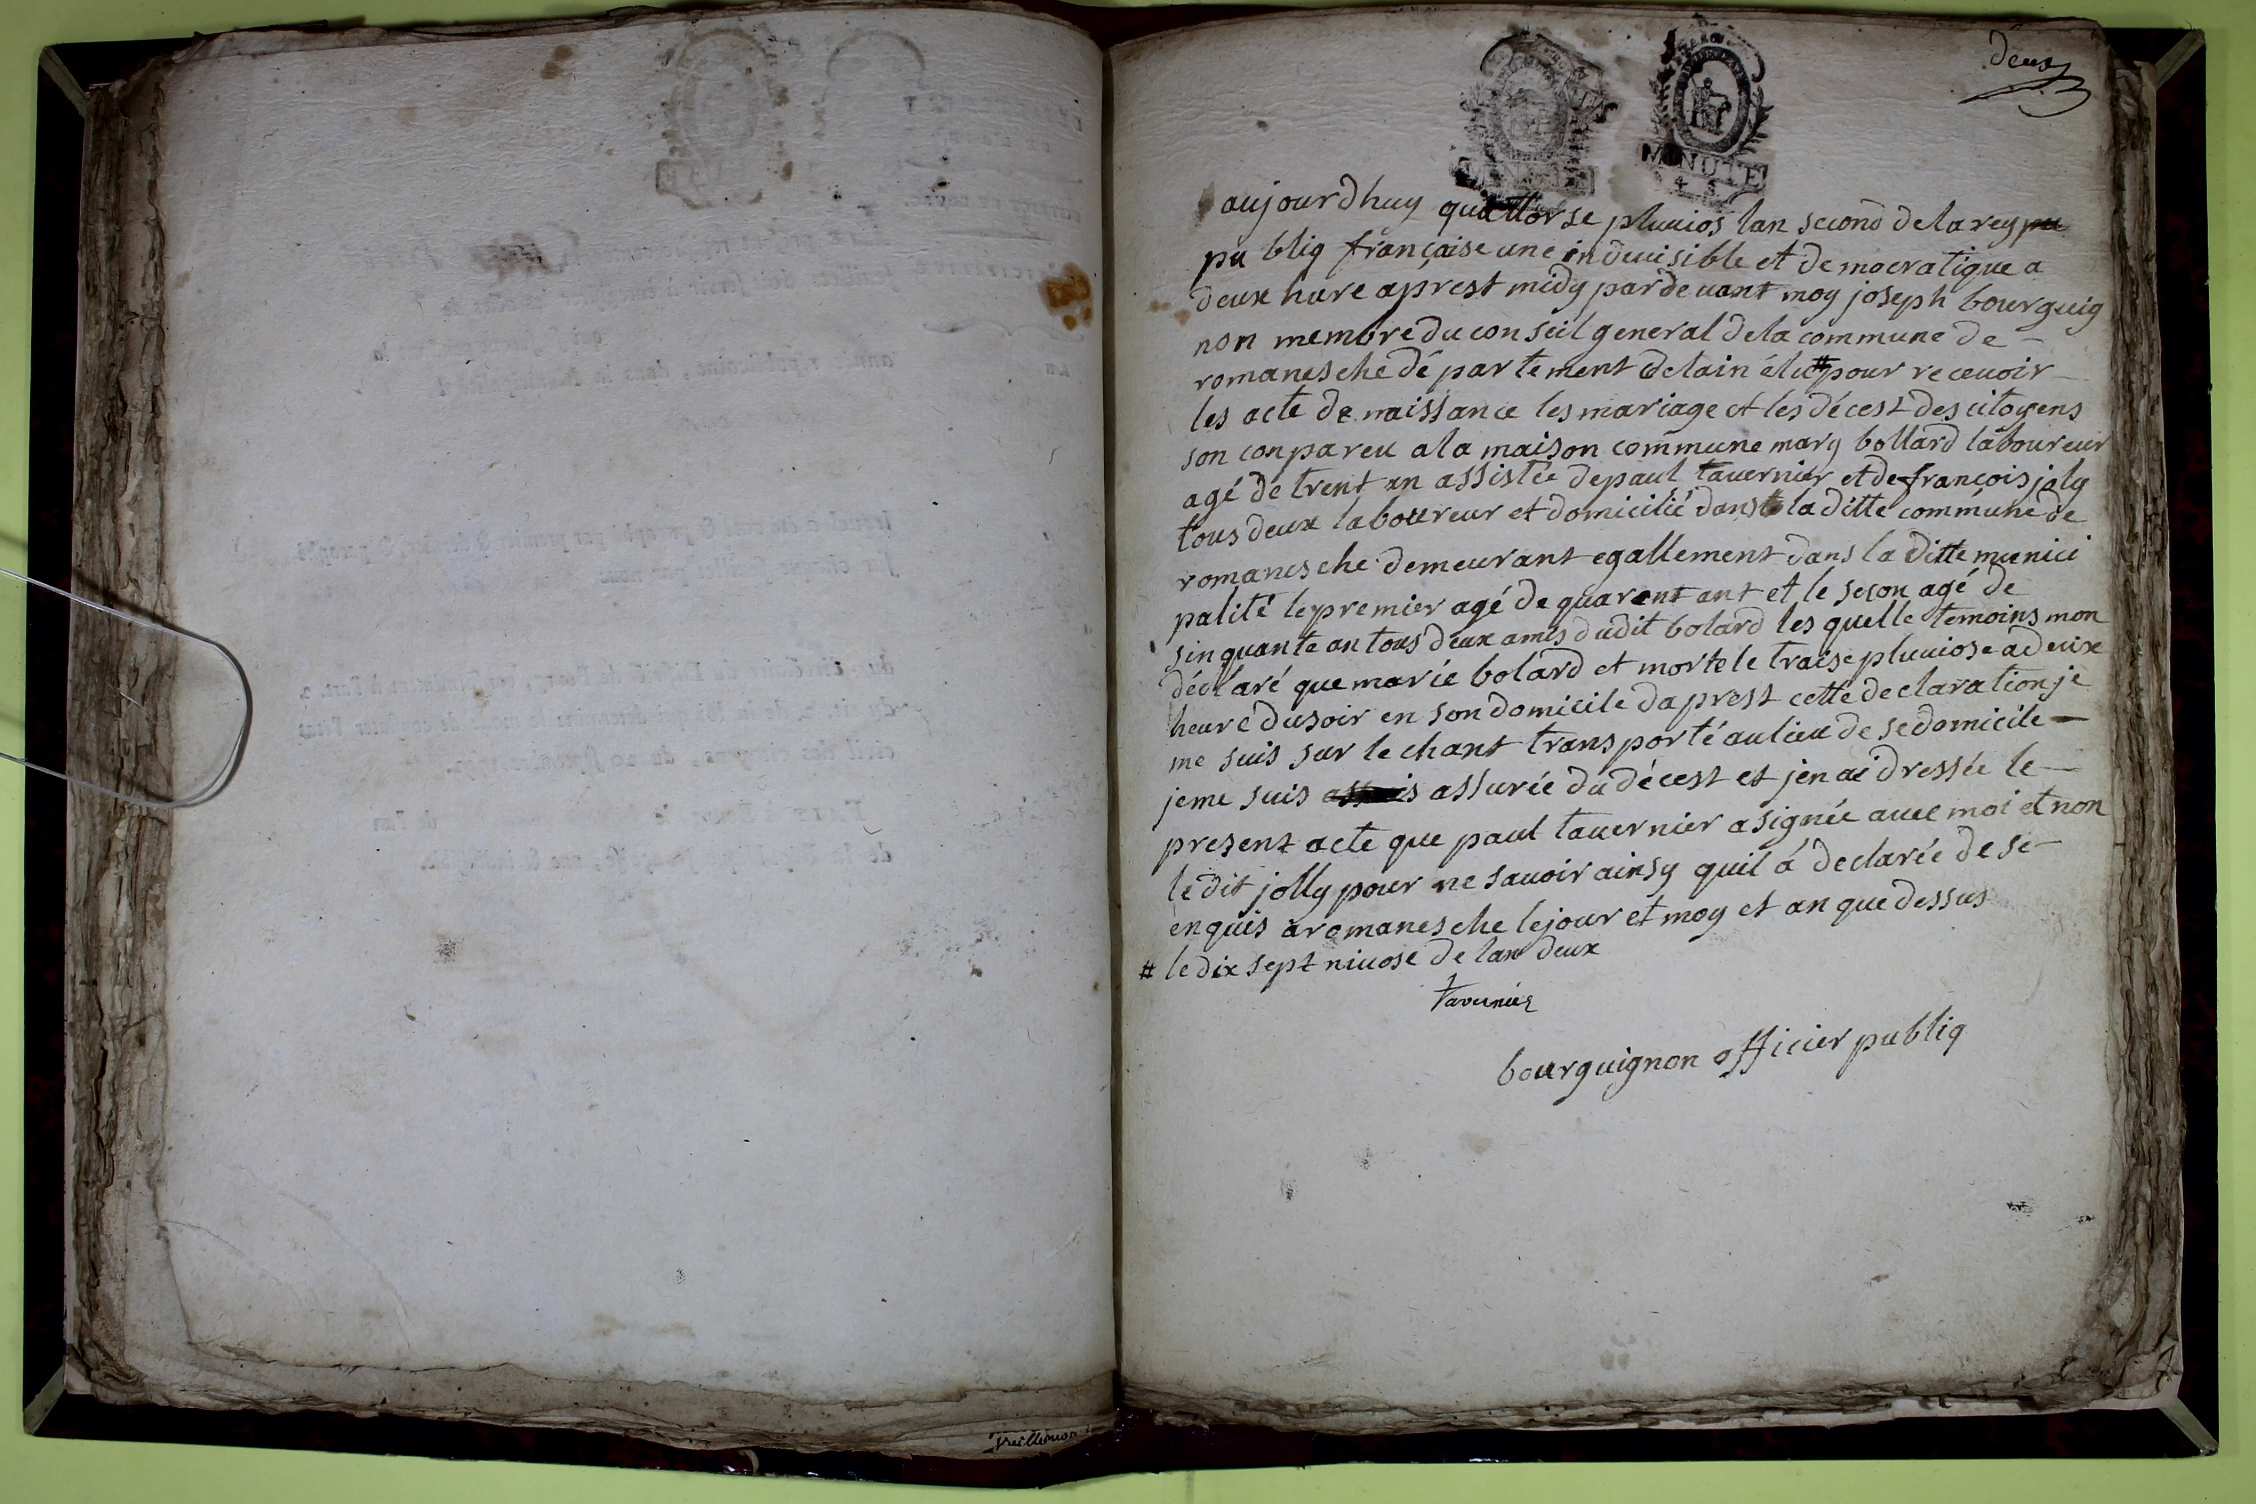 deux
MINUTE
4 S
aujourdhuy quattorse pluuios lan second de la rey pu
pu bliq française une indiuisible et democratique a
deux hure aprest midy parde uant moy joseph bourguig
non membre du conseil general dela commune de -
romanesche dé partement delain élu # pour receuoir -
les acte de naissance les mariage et les décest des citoyens
son conpareu ala maison commune marq bollard laboureur
agé de trent un assistée depaul tauernier et de françois joly
tous deux laboureur et domicilié dans la ditte commune de
romanesche demeurant egallement dans la ditte munici
palité lepremier agé de quarent ant et le seson agé de
sinquante an tous deux amis dudit bolard les quelle temoins mon
déclaré que marie bolard et morte le traise pluuiose a deux
heure dusoir en son domicile daprest cette declaration je
me suis sur le chant transporté au lieu de sedomicile -
jeme suis assurée du décest et jen ai dressée le -
present acte que paul tauernier a signée auec moi et non
le dit jolly pour ne sauoir ainsy quil á declarée de se -
enquis a romanesche lejour et moy et an que dessus
# le dix sept niuose de lan deux
tavernier
bourguignon officier publiq